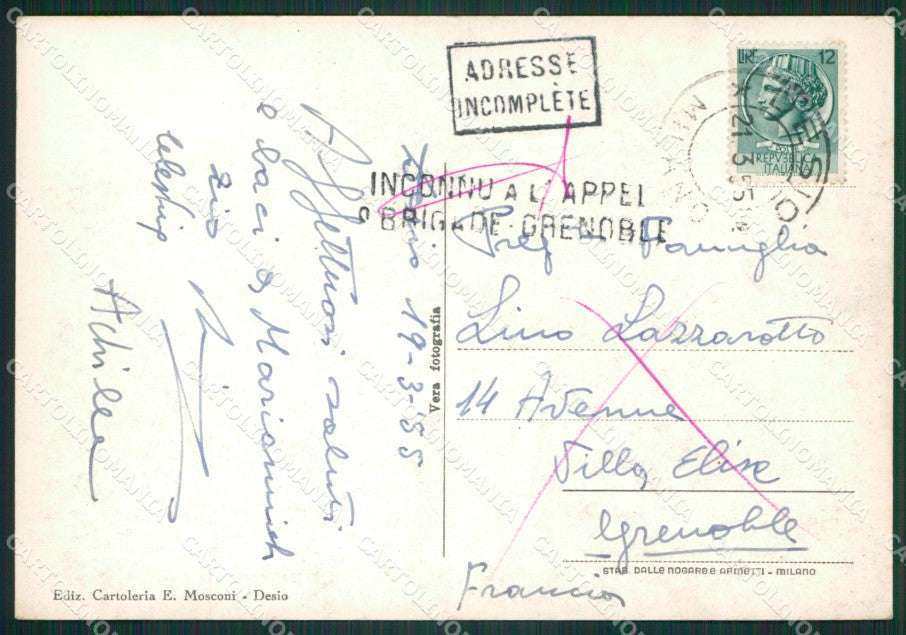 ADRESSE
INCOMPLÈTE
INCONNU A L'APPEL
BRIGADE-GRENOBLE
LIRE 12
POSTE
REPVBBLICA
ITALIANA
DESIO
MILANO
21 3 55
19-3-55
Affettuosi saluti
e baci a
zio
Achille
Preg Famiglia
Lino Lazzarotto
14 Avenue
Villa Elise
Grenoble
Francia
Vera fotografia
STAB. DALLE NOGARE E ARMETTI - MILANO
Ediz. Cartoleria E. Mosconi - Desio
CARTOLINOMANIA